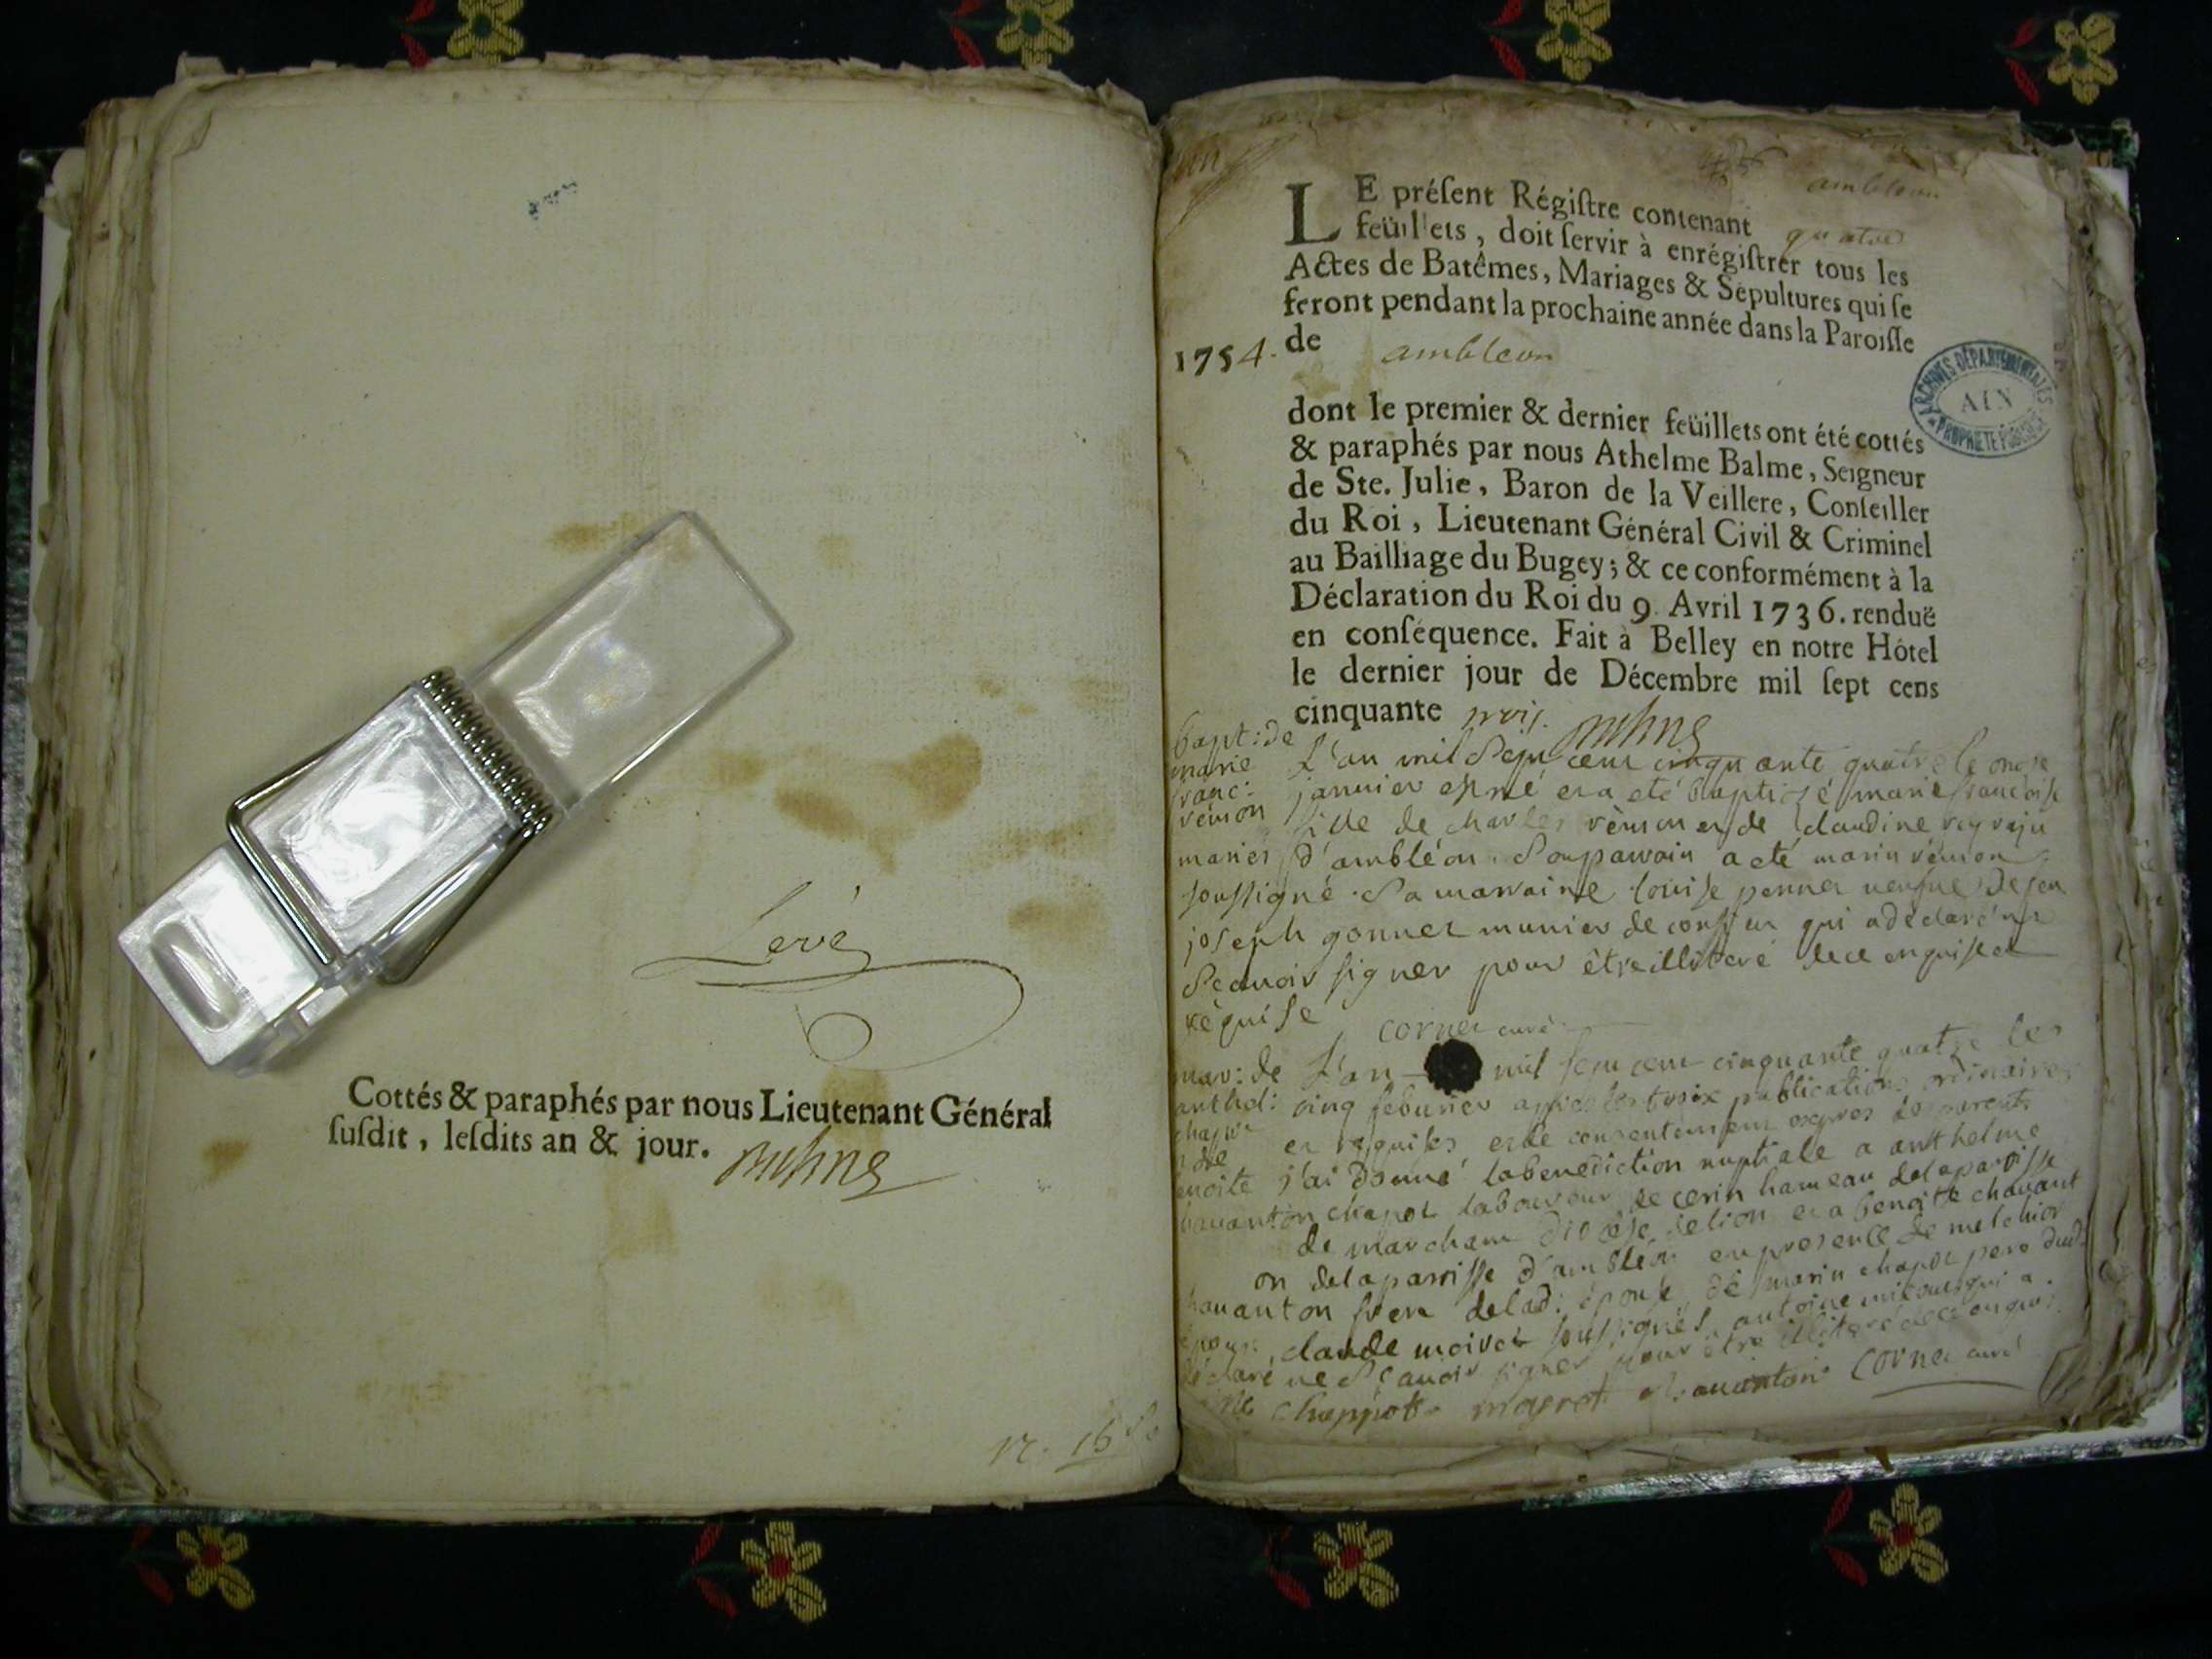 Levé
Cottés & paraphés par nous Lieutenant Général
ſuſdit, leſdits an & jour.
ambleon
LE préſent Régiſtre contenant quatre
feüillets, doit ſervir à enrégiſtrer tous les
Actes de Batêmes, Mariages & Sépultures qui ſe
feront pendant la prochaine année dans la Paroiſſe
1754. de ambleon
ARCHIVES DÉPARTEMENTALES
AIN
PROPRIÉTÉ PUBLIQUE
dont le premier & dernier feüillets ont été cottés
& paraphés par nous Athelme Balme, Seigneur
de Ste. Julie, Baron de la Veillere, Conſeiller
du Roi, Lieutenant Général Civil & Criminel
au Bailliage du Bugey; & ce conformément à la
Déclaration du Roi du 9. Avril 1736. renduë
en conſéquence. Fait à Belley en notre Hôtel
le dernier jour de Décembre mil ſept cens
cinquante trois.
bapt: de
marie
franc:
vémon
L'an mil Sept cent cinquante quatre le onze
janvier est né et a eté baptisé marie francoise
fille de charles vémon et de claudine
mariés d'ambléon. Son parrain a eté marin vémon
soussigné. Sa marraine louise veufve de feu
joseph gonnet munier de qui a déclaré ne
Scavoir signer pour être illiteré de ce enquise et
réquise
cornet curé
mar: de
anthel:
L'an mil sept cent cinquante quatre le
cinq feburier après les trois publications ordinaires
et requises, et le consentement exprès des parents
j'ai donné la benediction nuptiale a anthelme
chapot laboureur de cerin hameau de la paroisse
de marcham diocèse de lion et a benoite chavant
on de la parrisse d'ambléon en presence de melchior
havanton frere de lad: épouse de marin chapot pere dud:
épous: claude moiret soussignés, antoine qui a
déclaré ne Scavoir signer pour être illiteré de ce enquis
cornet curé